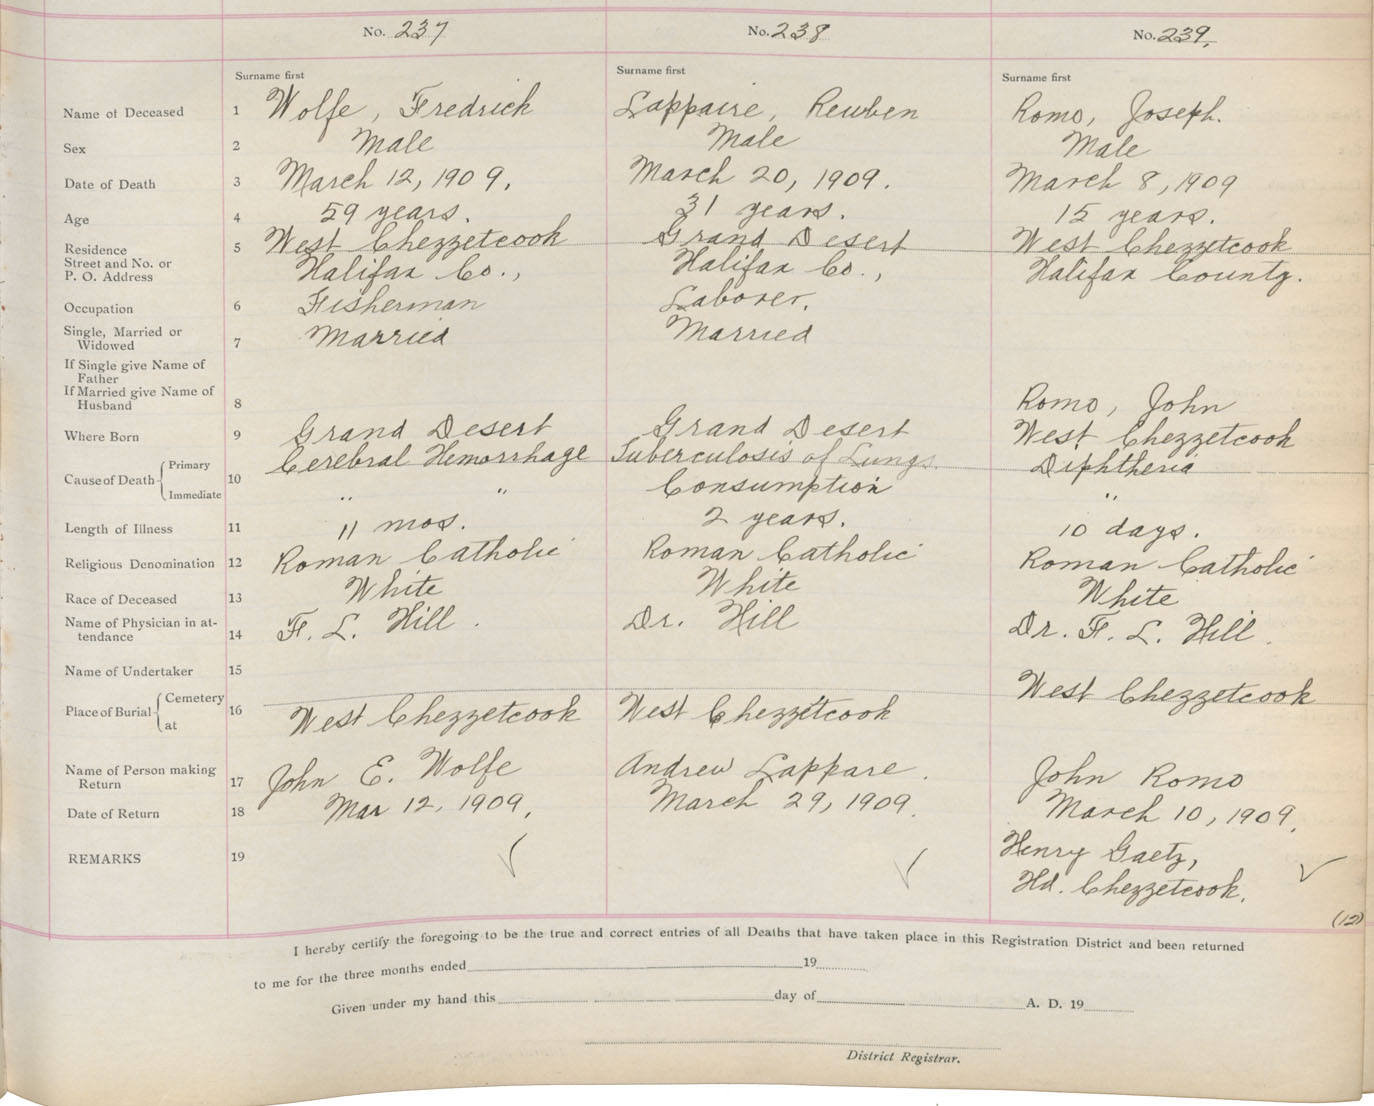 No. 237 No. 238 No. 239.
Surname first Surname first Surname first
Name of Deceased 1 Wolfe, Fredrich Lappaire, Reuben Romo, Joseph.
Sex 2 Male Male Male
Date of Death 3 March 12, 1909. March 20, 1909. March 8, 1909
Age 4 59 years. 31 years. 15 years.
Residence 5 West Chezzetcook Grand Desert West Chezzetcook
Street and No. or
P. O. Address Halifax Co., Halifax Co., Halifax County.
Occupation 6 Fisherman Laborer.
Single, Married or
Widowed 7 Married Married
If Single give Name of
Father
If Married give Name of
Husband 8 Romo, John
Where Born 9 Grand Desert Grand Desert West Chezzetcook
Cause of Death Primary 10 Cerebral Hemorrhage Tuberculosis of Lungs. Diphtheria
Immediate " " Consumption "
Length of Illness 11 11 mos. 2 years. 10 days.
Religious Denomination 12 Roman Catholic Roman Catholic Roman Catholic
Race of Deceased 13 White White White
Name of Physician in at-
tendance 14 F. L. Hill. Dr. Hill Dr. F. L. Hill.
Name of Undertaker 15
Place of Burial Cemetery 16 West Chezzetcook
at West Chezzetcook West Chezzitcook
Name of Person making
Return 17 John E. Wolfe Andrew Lappare. John Romo
Date of Return 18 Mar 12, 1909. March 29, 1909. March 10, 1909.
REMARKS 19 Henry Gaetz,
Hd. Chezzetcook.
(12)
I hereby certify the foregoing to be the true and correct entries of all Deaths that have taken place in this Registration District and been returned
to me for the three months ended 19
Given under my hand this day of A. D. 19
District Registrar.